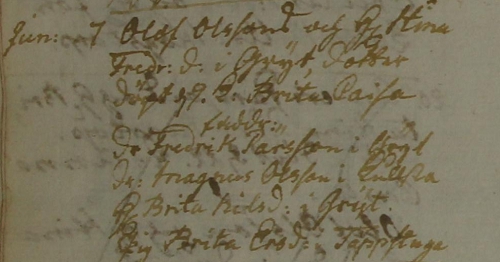 Jun: 7 Olof Olssons och H. Stina
Fredr: d: i Gryt, dotter
döpt d. 9. Brita Caisa
Faddr:
Dr Fredrik Larsson i
Dr: Magnus Olsson i
H. Brita Nilsd: i Gryt.
Pig Brita Ersd: i Täppstuga